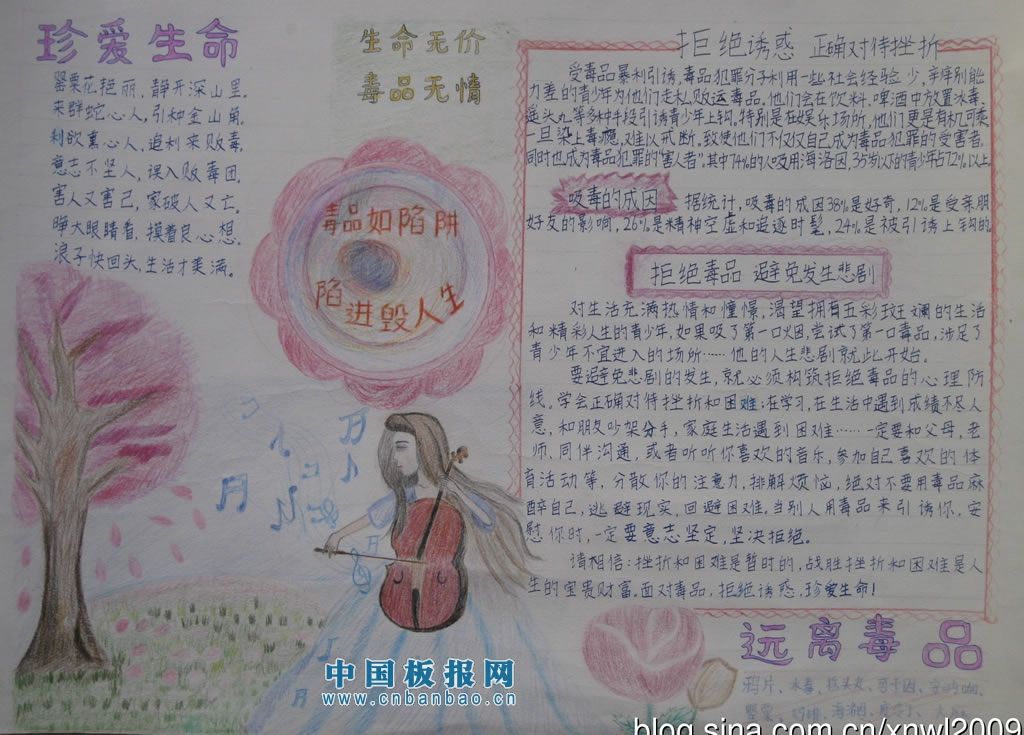 珍爱生命
罂粟花艳丽，静开深山里。
来群蛇心人，引种金山角。
利欲熏心人，追利来贩毒。
意志不坚人，误入贩毒团。
害人又害己，家破人又亡。
睁大眼睛看，摸着良心想。
浪子快回头，生活才美满。
生命无价
毒品无情
毒品如陷阱
陷进毁人生
拒绝诱惑 正确对待挫折
受毒品暴利引诱，毒品犯罪分子利用一些社会经验少，辨别能
力差的青少年为他们走私贩运毒品。他们会在饮料、啤酒中放置冰毒、
摇头丸等多种手段引诱青少年上钩。特别是在娱乐场所，他们更是有机可乘
一旦染上毒瘾，难以戒断。致使他们不仅仅自己成为毒品犯罪的受害者，
同时也成为毒品犯罪的"害人者"。其中74%的人吸用海洛因，35岁以下的青少年占72%以上
吸毒的成因 据统计，吸毒的成因38%是好奇，12%是受亲朋
好友的影响，26%是精神空虚和追逐时髦，24%是被引诱上钩的
拒绝毒品 避免发生悲剧
对生活充满热情和憧憬，渴望拥有五彩斑斓的生活
和精彩人生的青少年，如果吸了第一口烟，尝试了第一口毒品，涉足了
青少年不宜进入的场所……他的人生悲剧就此开始。
要避免悲剧的发生，就必须构筑拒绝毒品的心理防
线。学会正确对待挫折和困难；在学习，在生活中遇到成绩不尽人
意，和朋友吵架分手，家庭生活遇到困难……一定要和父母，老
师、同伴沟通，或者听听你喜欢的音乐，参加自己喜欢的体
育活动等，分散你的注意力，排解烦恼，绝对不要用毒品麻
醉自己，逃避现实，回避困难，当别人用毒品来引诱你，安
慰你时，一定要意志坚定，坚决拒绝。
请相信：挫折和困难是暂时的，战胜挫折和困难是人
生的宝贵财富，面对毒品，拒绝诱惑，珍爱生命！
远离毒品
鸦片、冰毒、摇头丸
罂粟、海洛因
中国板报网
www.cnbanbao.cn
blog.sina.com.cn/xnwl2009